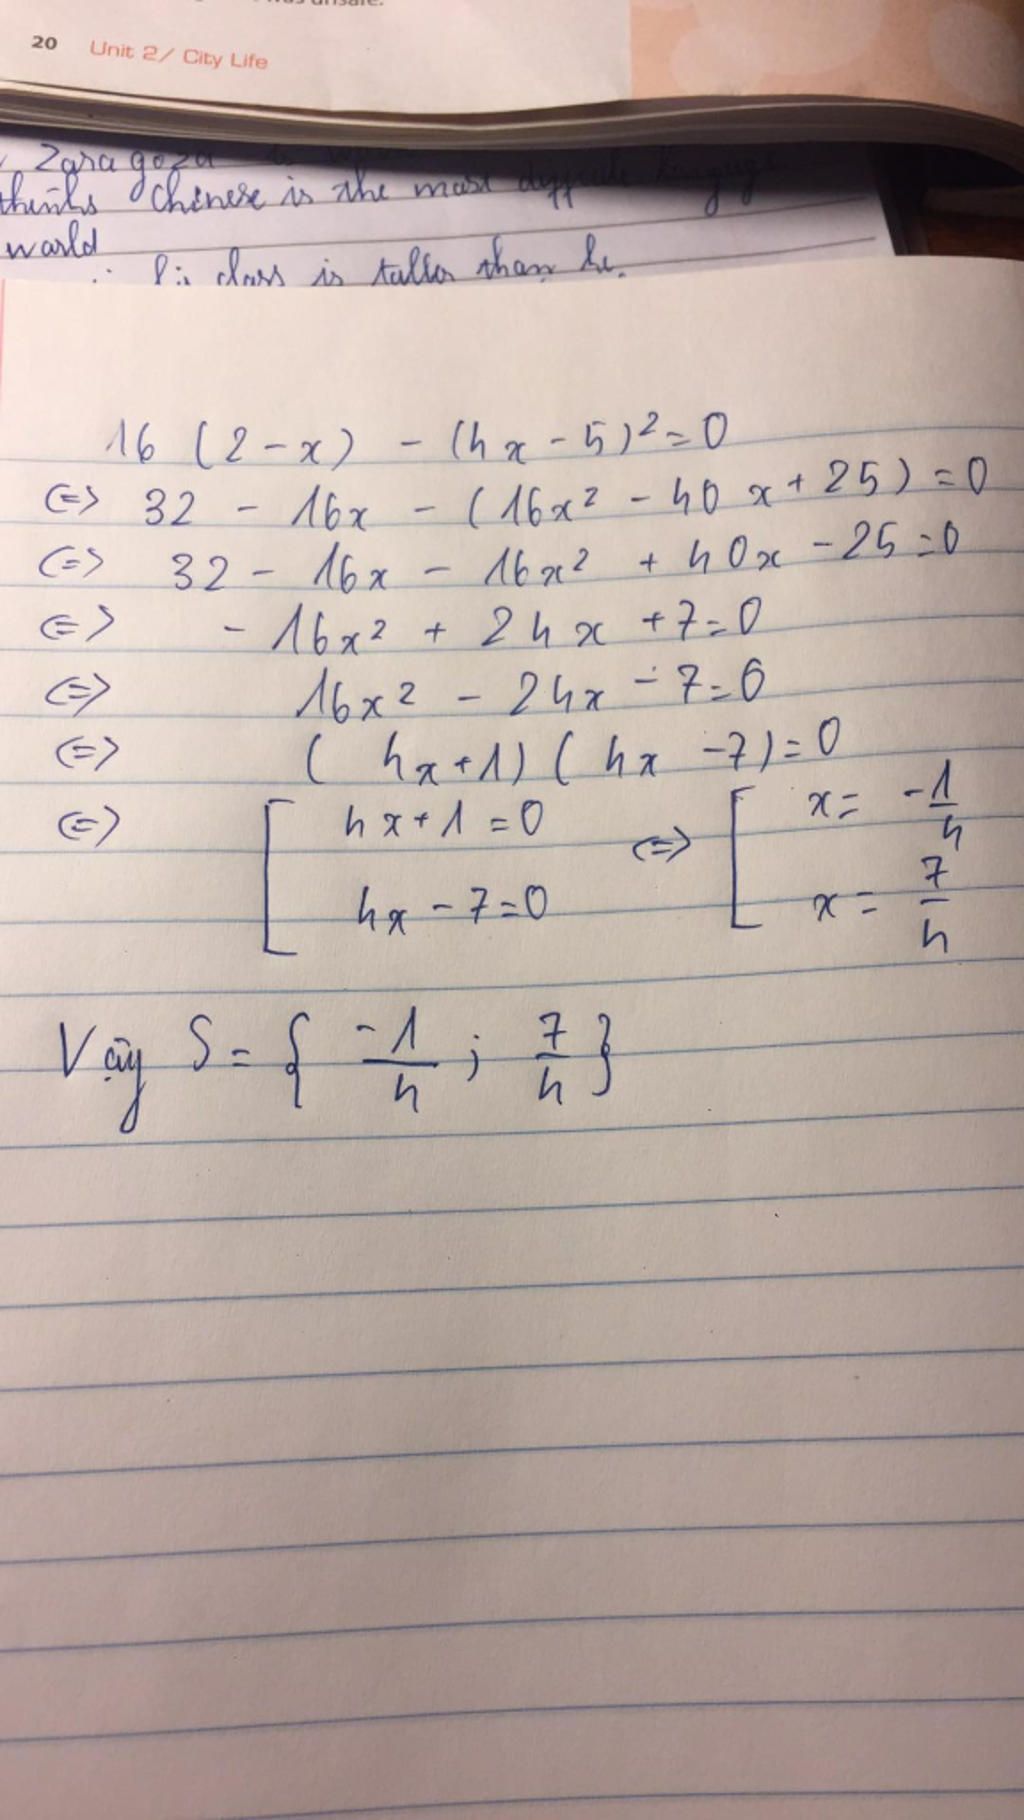 was unsafe.
20 Unit 2/ City Life
Zaragoza
thinks Chinese is the most
world
class is taller than he.
16 (2 - x) - (4x - 5)² = 0
<=> 32 - 16x - (16x² - 40x + 25) = 0
<=> 32 - 16x - 16x² + 40x - 25 = 0
<=> - 16x² + 24x + 7 = 0
<=> 16x² - 24x - 7 = 0
<=> (4x + 1) (4x - 7) = 0
<=> [ 4x + 1 = 0 <=> [ x = -1/4
4x - 7 = 0 x = 7/4
Vậy S = { -1/4 ; 7/4 }